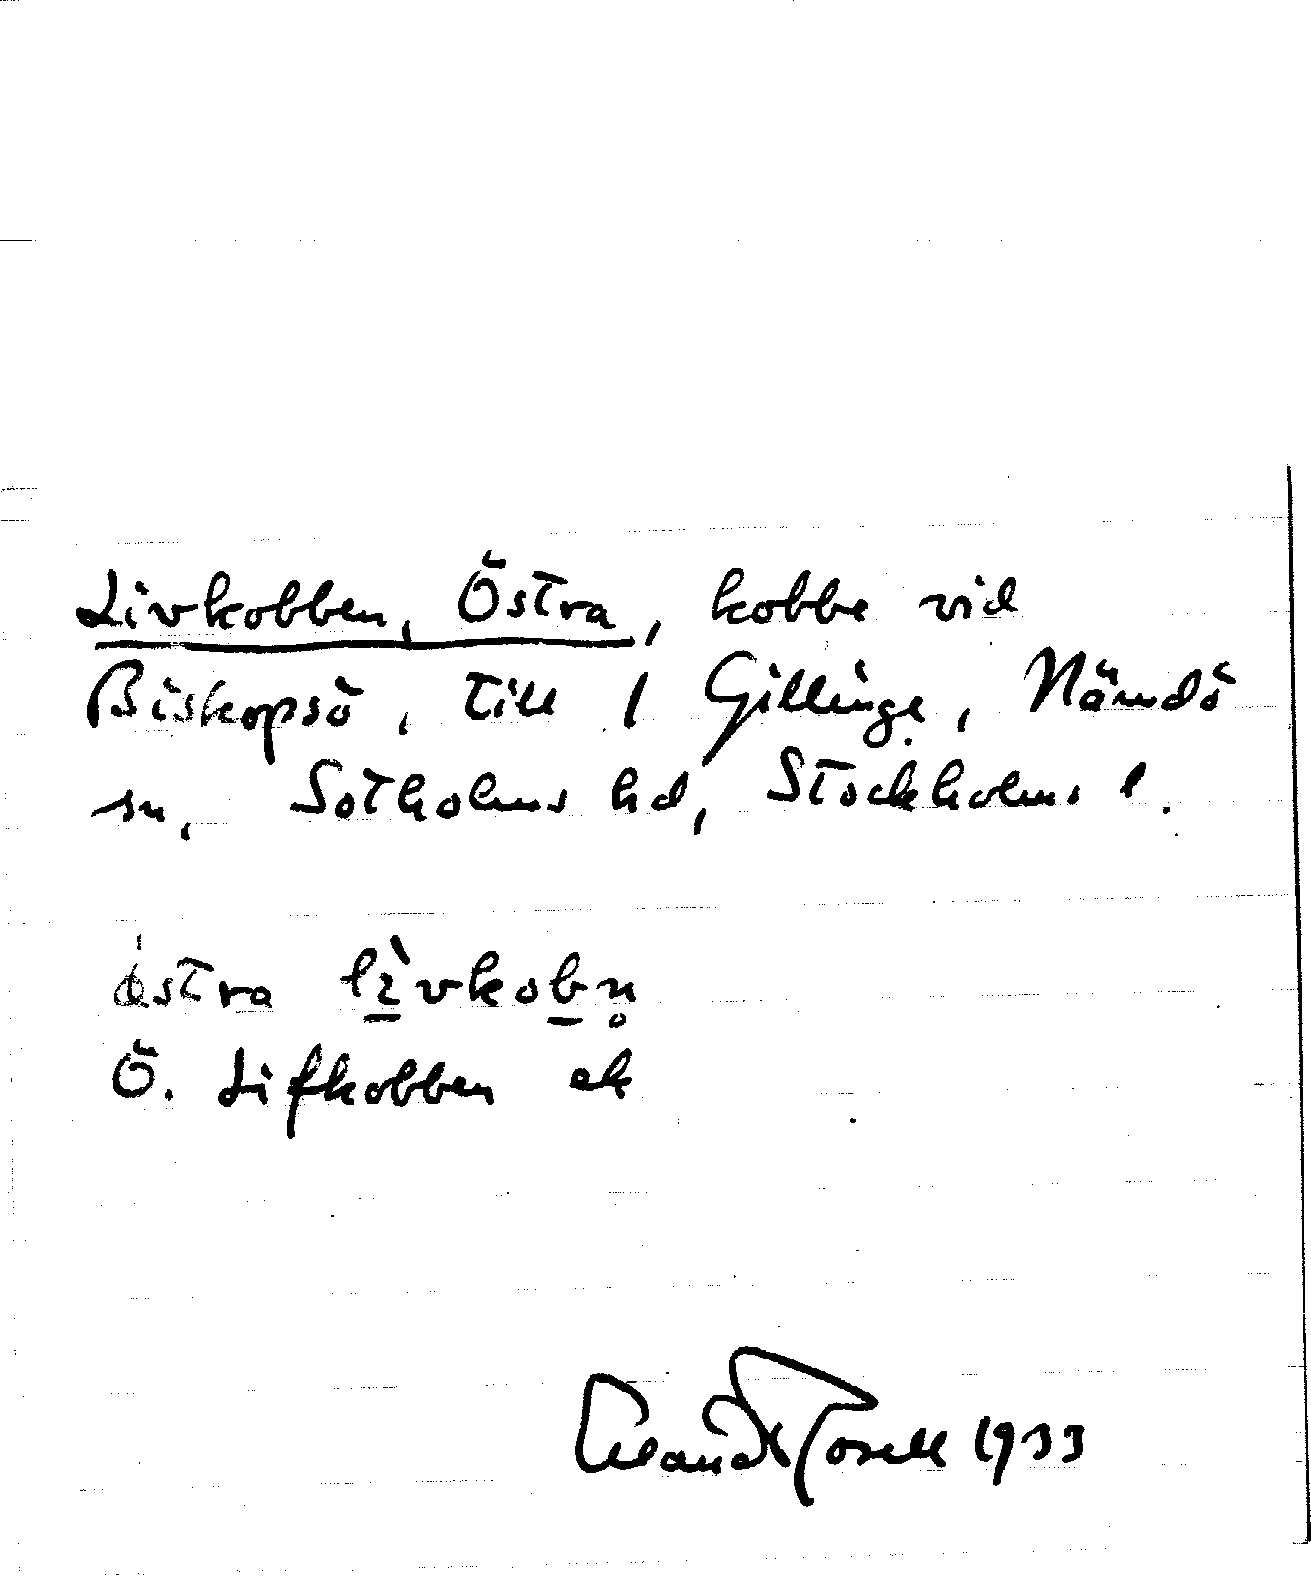 Livkobben, Östra, kobbe vid
Biskopsö, till 1 Gillinge, Nämdö
sn, Sotholms hd, Stockholms l.
östra lìvkobn̥
Ö. Lifkobben ek
Torell 1933